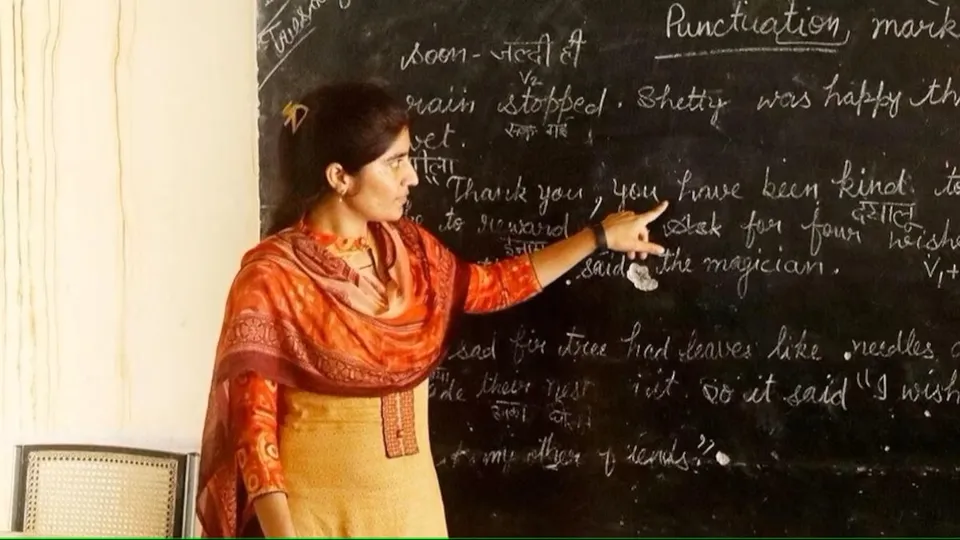 Punctuation mark
soon - जल्दी ही
V2
rain stopped. Shetty was happy th
रुक गई
wet.
"Thank you, you have been kind. to
दयालु
to reward Ask for four wishe
ईनाम
said the magician. V1+
sad fir tree had leaves like needles,
their nest it. So it said "I wish
उनका
my other friends."